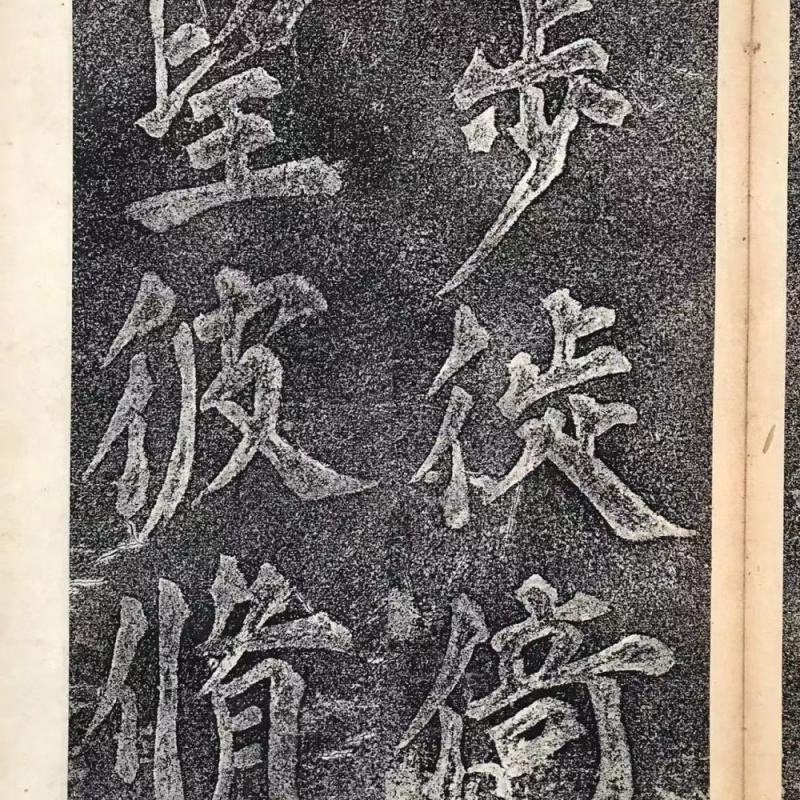 步徙倚
望彼脩